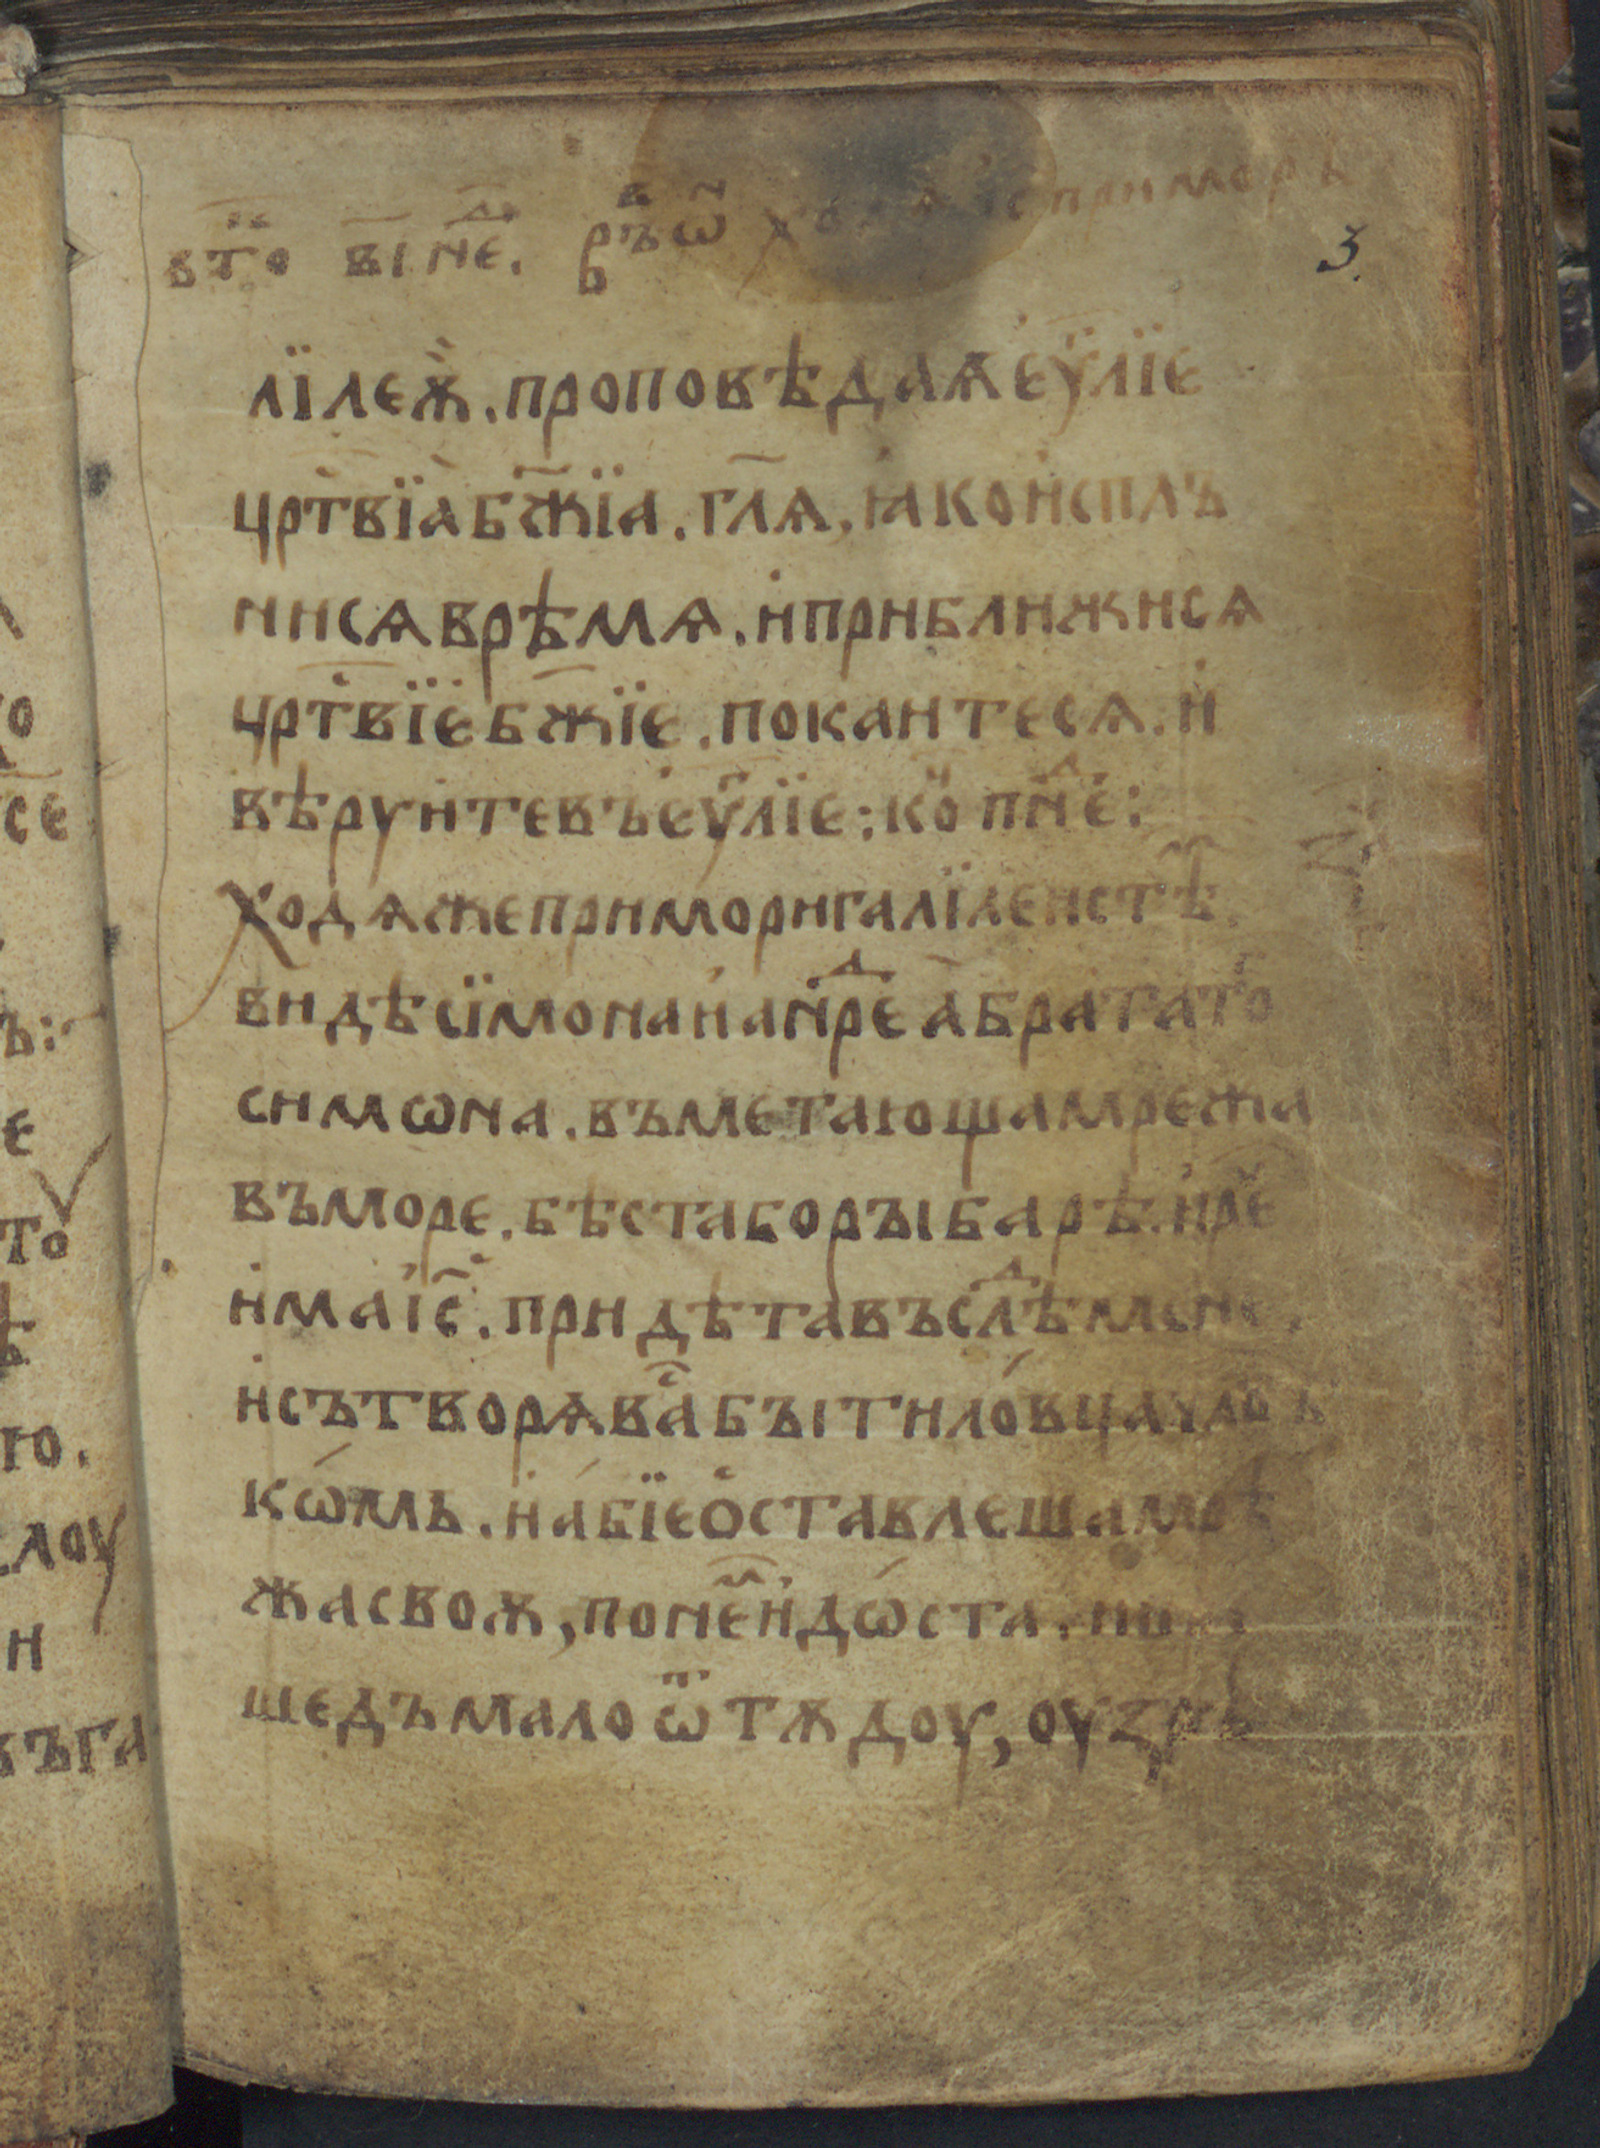 вт҃о в҃і не҃ⷣ. рⷡ҇ъ ѡ҃ хо при морѣ
3.
лїлеѫ̀. проповѣдаѧ е҆ѵ҃лїе
цр҃твїа̀ б҃жїа. гл҃ѧ. ꙗко и҆сплъ
нисѧ врѣмѧ. и҆ приближисѧ
цр҃твїе б҃жїе. покаитесѧ. и҆
вѣруи҆те въ е҆ѵ҃лїе : ко҃ⷩ пⷩ҇еⷣ :
Ходѧ же при мори галїлеистѣⷨ.
видѣ сїмона и҆ а҆нⷣрѣ̀а брата то҃ⷢ
симѡна. въметающа мрежа
въ море. бѣста бо рыбарѣ. и҆ рⷱ҇е
и҆ма і҆с҃. придѣта въ слѣⷣ мене.
и҆ сътворѧ ваⷭ҇ быти ло́вца чло
кѡ́мь. и҆ а́бїе о҆ставлеша мрѣ
жа своѫ, по неⷨ҇ и҆дѡ́ста.
шедъ мало ѿ тѫдоу, оузрѣ